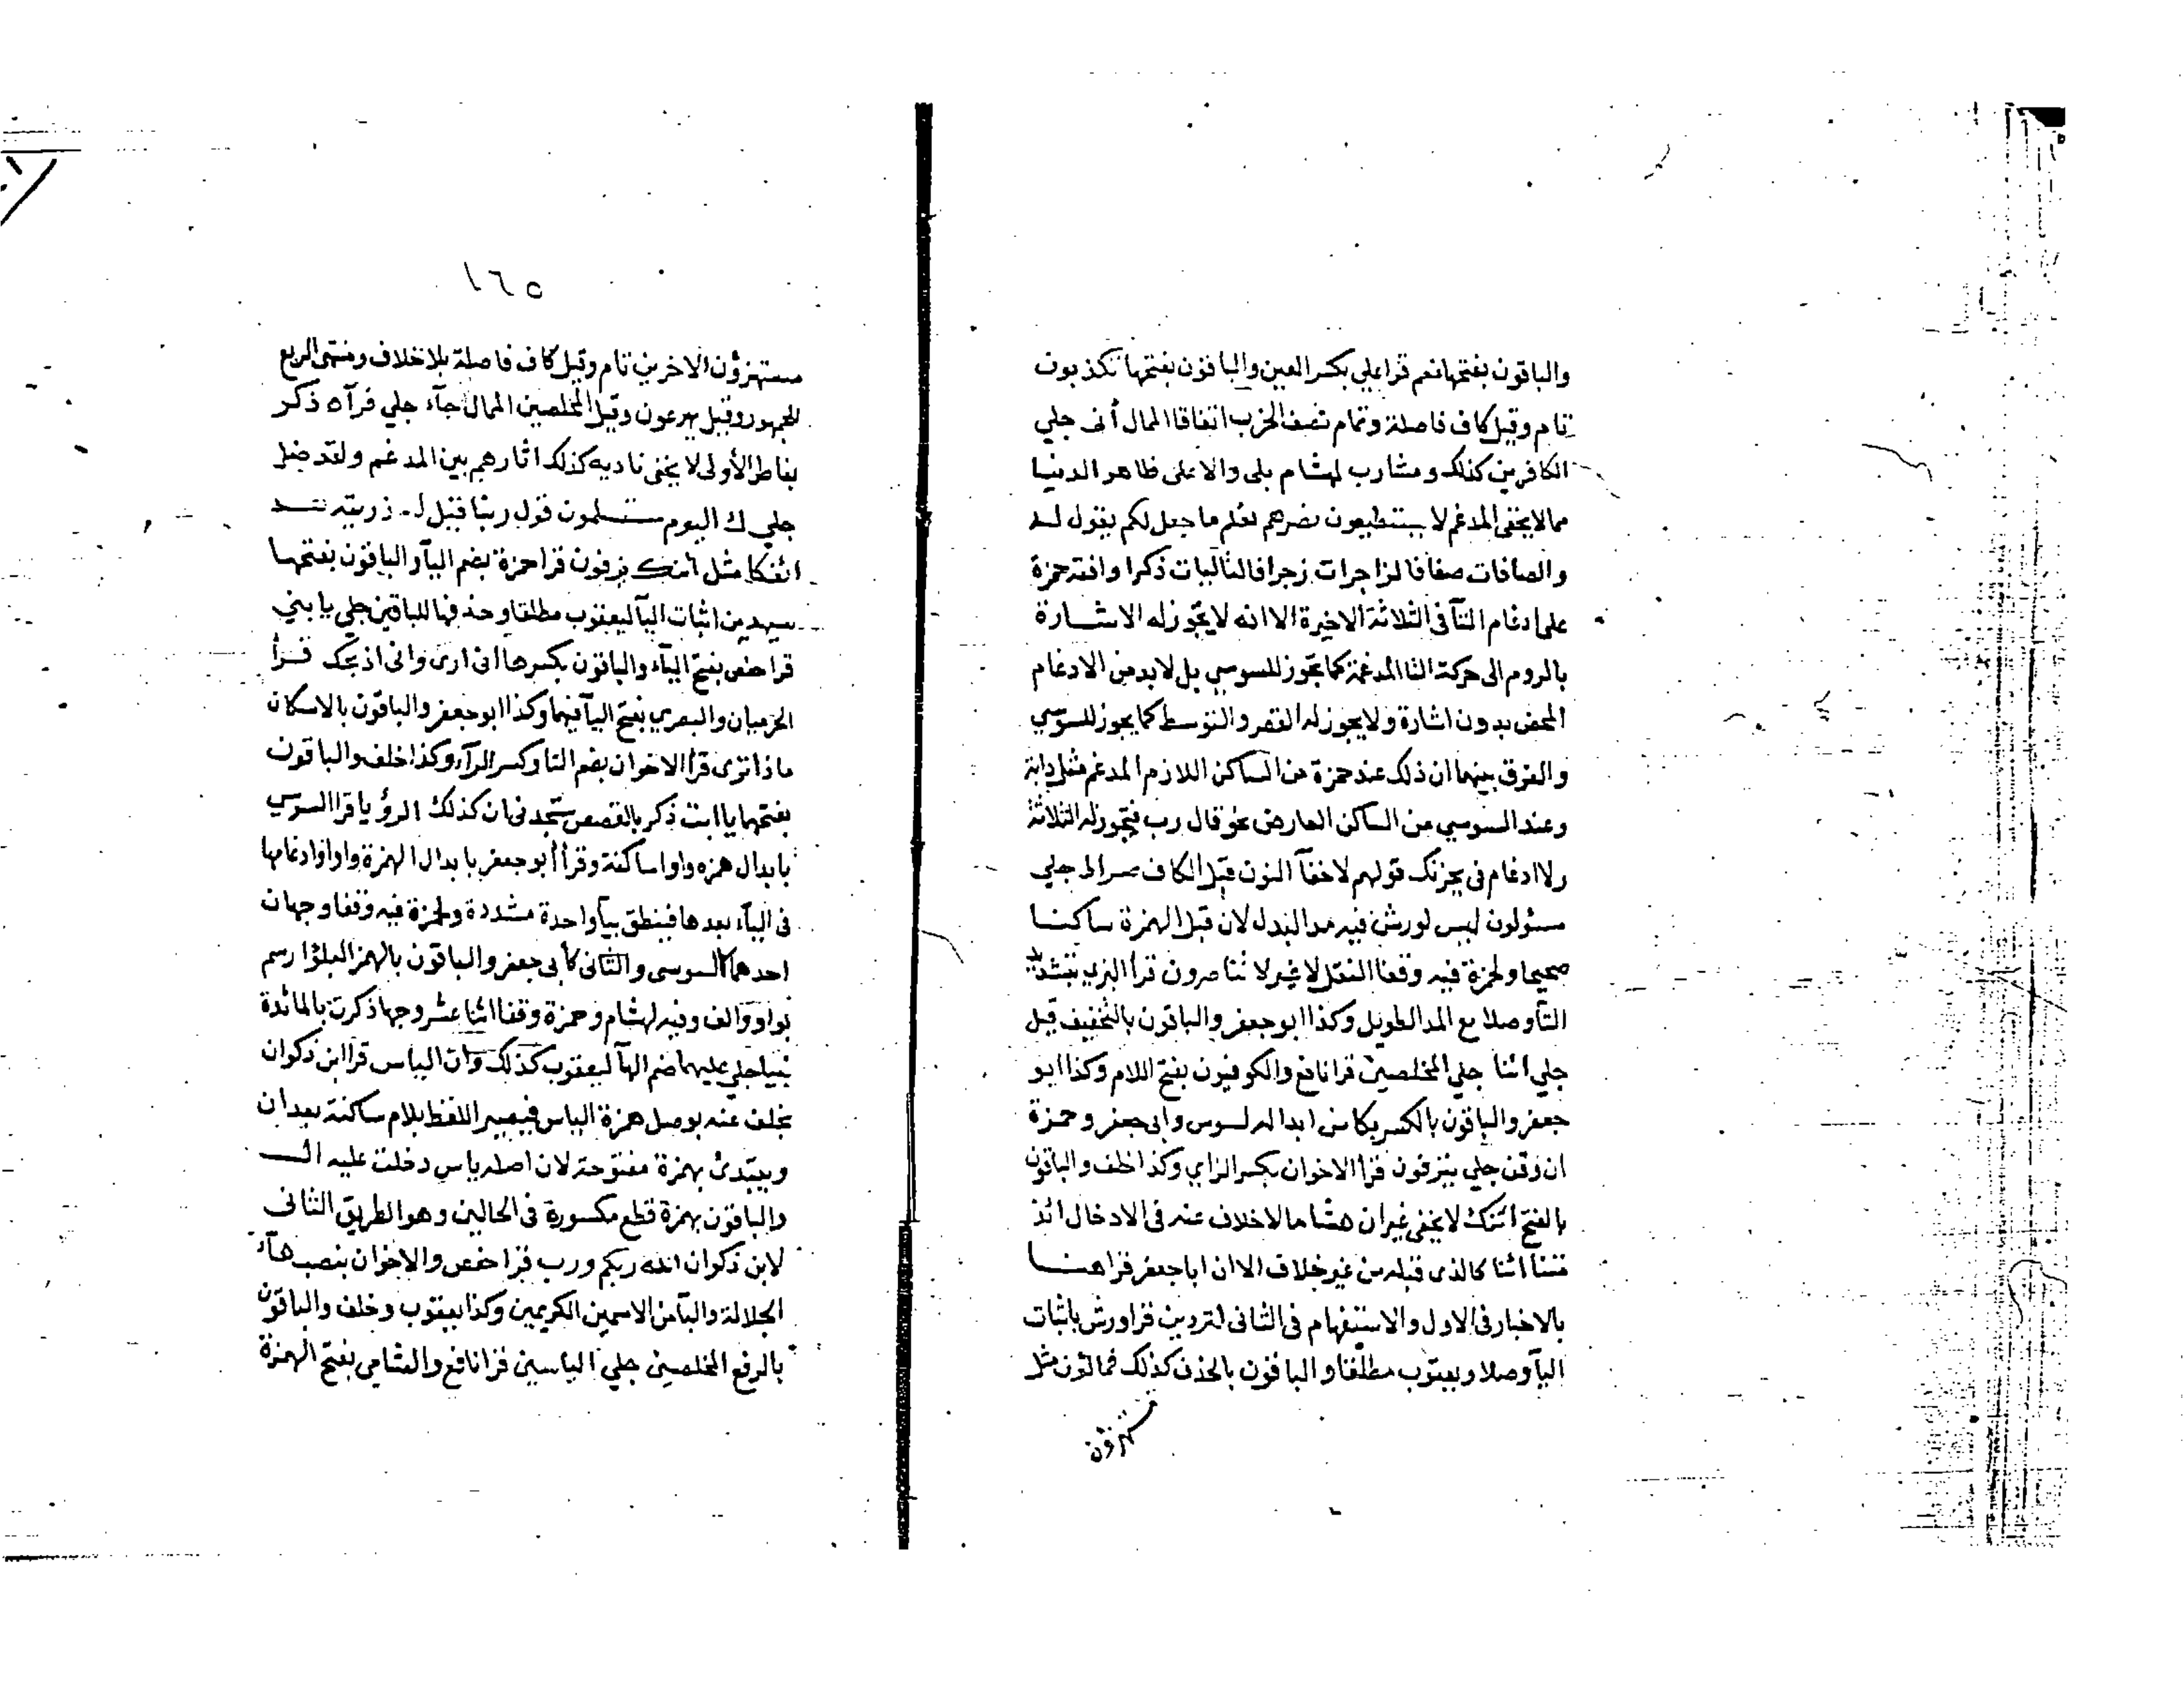 والباقون بفتحها نعم قرا علي بكسر العين والباقون بفتحها تكذبون
تام وقيل كاف فاصلة وتمام نصف الحزب اتفاقا الممال أنى جلي
الكافرين كذلك ومشارب لهشام بلى والاعلى ظاهر الدنيا
مما لا يخفى المدغم لا يستطيعون نصرهم نعلم ما جعل لكم يقول له
والصافات صفا فالزاجرات زجرا فالتاليات ذكرا وافقه حمزة
على ادغام التآ فى الثلاثة الاخيرة الا انه لا يجوز له الاشارة
بالروم الى حركة التا المدغمة كما يجوز للسوسي بل لا بد من الادغام
المحض بدون اشارة ولا يجوز له القصر والتوسط كما يجوز للسوسي
والفرق بينهما ان ذلك عند حمزة من الساكن اللازم المدغم مثل دابة
وعند السوسي من الساكن العارض نحو قال رب فيجوز له الثلاثة
ولا ادغام فى يحزنك قولهم لاخفآ النون قبل الكاف صراط جلي
مسئولون ليس لورش فيه مد البدل لان قبل الهمزة ساكنا
صحيحا ولحمزة فيه وقفا النقل لا غير لا تناصرون قرا البزي بتشديد
التآ وصلا مع المد الطويل وكذا ابو جعفر والباقون بالتخفيف قيل
جلي ائنا جلي المخلصين قرا نافع والكوفيون بفتح اللام وكذا ابو
جعفر والباقون بالكسر بكاس ابداله لسوس وابى جعفر وحمزة
ان وقف جلي ينزفون قرا الاخوان بكسر الزاي وكذا خلف والباقون
بالفتح ائنك لا يخفى غير ان هشاما لا خلاف عنه فى الادخال ائذ
متنا ائنا كالذى قبله من غير خلاف الا ان ابا جعفر قرا هنا
بالاخبار فى الاول والاستفهام فى الثانى لتردين قرا ورش باثبات
اليآ وصلا ويعقوب مطلقا والباقون بالحذف كذلك فمالئون مثل
١٦٥
مستهزؤن الاخرين تام وقيل كاف فاصلة بلا خلاف ومنتهى الربع
للجمهور وقيل يهرعون وقيل المخلصين الممال جآء جلي فرآه ذكر
بفاطر الأولى لا يخفى ناديه كذلك اثارهم بين المدغم ولقد ضل
جلي ك اليوم مستسلمون قول ربنا قيل له ذريته
ائفكا مثل ائنك يزفون قرا حمزة بضم اليآ والباقون بفتحها
سيهدين اثبات اليآ ليعقوب مطلقا وحذفها للباقين جلي يا بني
قرا حفص بفتح اليآء والباقون بكسرها انى ارى وانى اذبحك قرأ
الحرميان والبصري بفتح اليآ فيهما وكذا ابو جعفر والباقون بالاسكان
ماذا ترى قرأ الاخوان بضم التا وكسر الرآء وكذا خلف والباقون
بفتحهما يا ابت ذكر بالقصص ستجدنى ان كذلك الرؤيا قرا السوسي
بابدال همزه واوا ساكنة وقرأ أبو جعفر بابدال الهمزة واوا وادغامها
فى اليآء بعدها فينطق بيآ واحدة مشددة ولحمزة فيه وقفا وجهان
احدهما كالسوسى والثانى كأبى جعفر والباقون بالهمز البلؤا رسم
بواو والف وفيه لهشام وحمزة وقفا اثنا عشر وجها ذكرت بالمائدة
نبيا جلي عليهما ضم الهآ ليعقوب كذلك وان الياس قرا ابن ذكوان
بخلف عنه بوصل همزة الياس فيصير اللفظ بلام ساكنة بعد ان
ويبتدئ بهمزة مفتوحة لان اصله ياس دخلت عليه ال
والباقون بهمزة قطع مكسورة فى الحالين وهو الطريق الثانى
لابن ذكوان الله ربكم ورب قرا حفص والاخوان بنصب هآء
الجلالة والبآ من الاسمين الكريمين وكذا يعقوب وخلف والباقون
بالرفع المخلصين جلي الياسين قرا نافع والشامى بفتح الهمزة